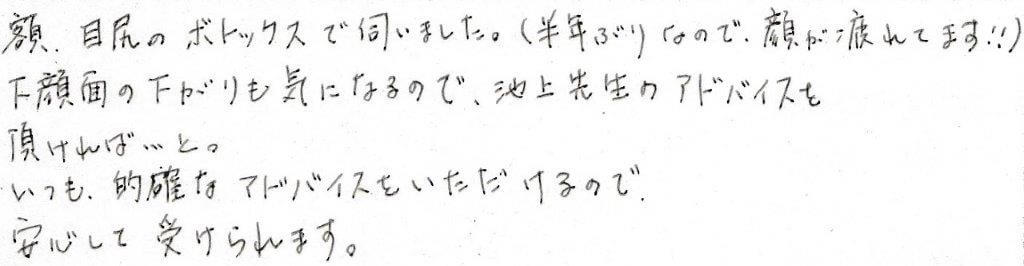 額、目尻の ボトックスで伺いました。(半年ぶりなので、顔が疲れてます!!)
下顔面の下がりも気になるので、池上先生のアドバイスを
頂ければ…と。
いつも、的確な アドバイスをいただけるので、
安心して 受けられます。